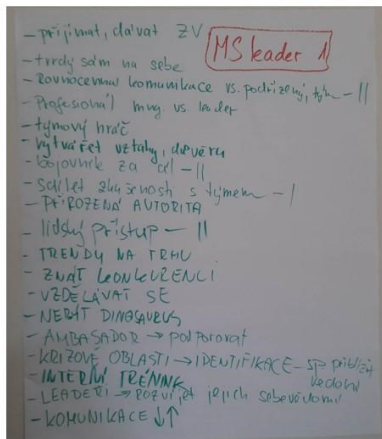 MS leader 1
- přijímat, dávat ZV
- tvrdý sám na sebe
- rovnocenná komunikace vs. podřízený, tým - II
- Profesionál mng vs leader
- týmový hráč
- vytvářet vztahy, důvěru
- bojovník za cíl - II
- sdílet zkušenost s týmem - I
- PŘIROZENÁ AUTORITA
- lidský přístup - II
- TRENDY NA TRHU
- ZNÁT KONKURENCI
- VZDĚLÁVAT SE
- NEBÝT DINOSAURUS
- AMBASADOR → podporovat
- KRIZOVÉ OBLASTI → IDENTIFIKACE -
- INTERNÍ TRÉNINK
- LEADEŘI → ROZVÍJET jejich sebevědomí
- KOMUNIKACE ↓↑